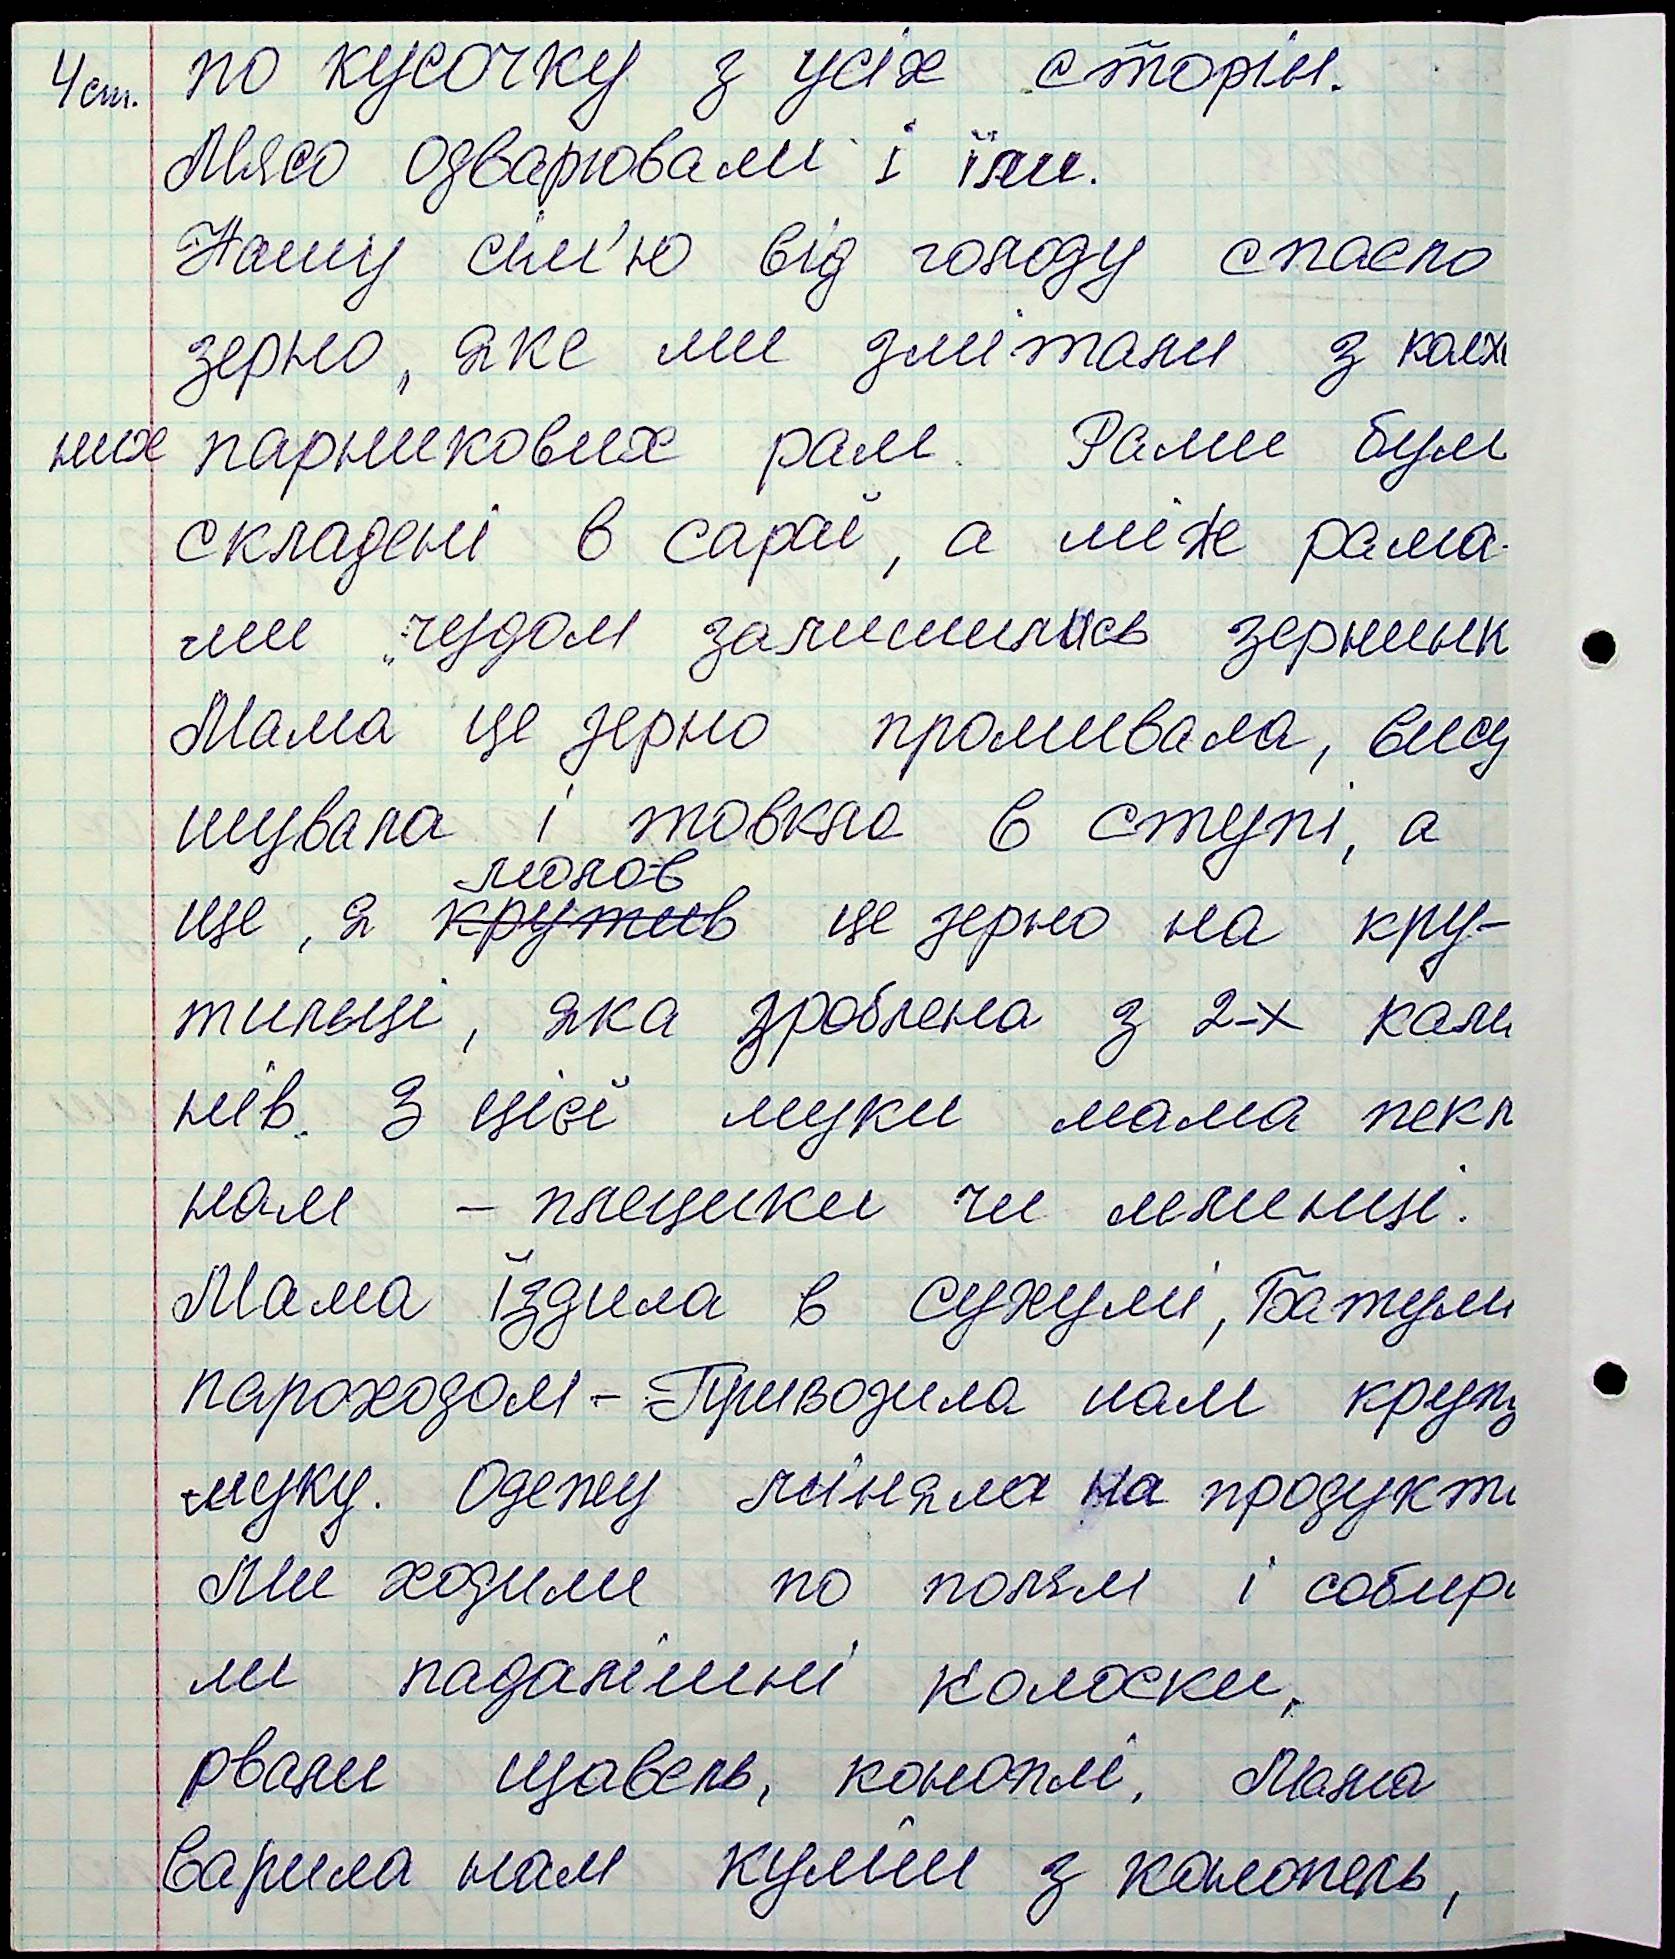 4 ст. по кусочку з усіх сторін.
Мясо одварювали і їли.
Нашу сім'ю від голоду спасло
зерно, яке ми змітали з колх
них парникових рам. Рами були
складені в сараї, а між рама-
ми чудом залишились зернинк
Мама це зерно промивала, вису
шувала і товкла в ступі, а
молов
ще, я крутив це зерно на кру-
тильці, яка зроблена з 2-х камі
нів. З цієї муки мама пекл
нам – плещики чи млинці.
Мама їздила в Сухумі, Батумі
пароходом – Привозила нам крупу
муку. Одежу міняла на продукти
Ми ходили по полям і собира
ли падалішні колоски,
рвали щавель, коноплі. Мама
варила нам куліш з конопель,